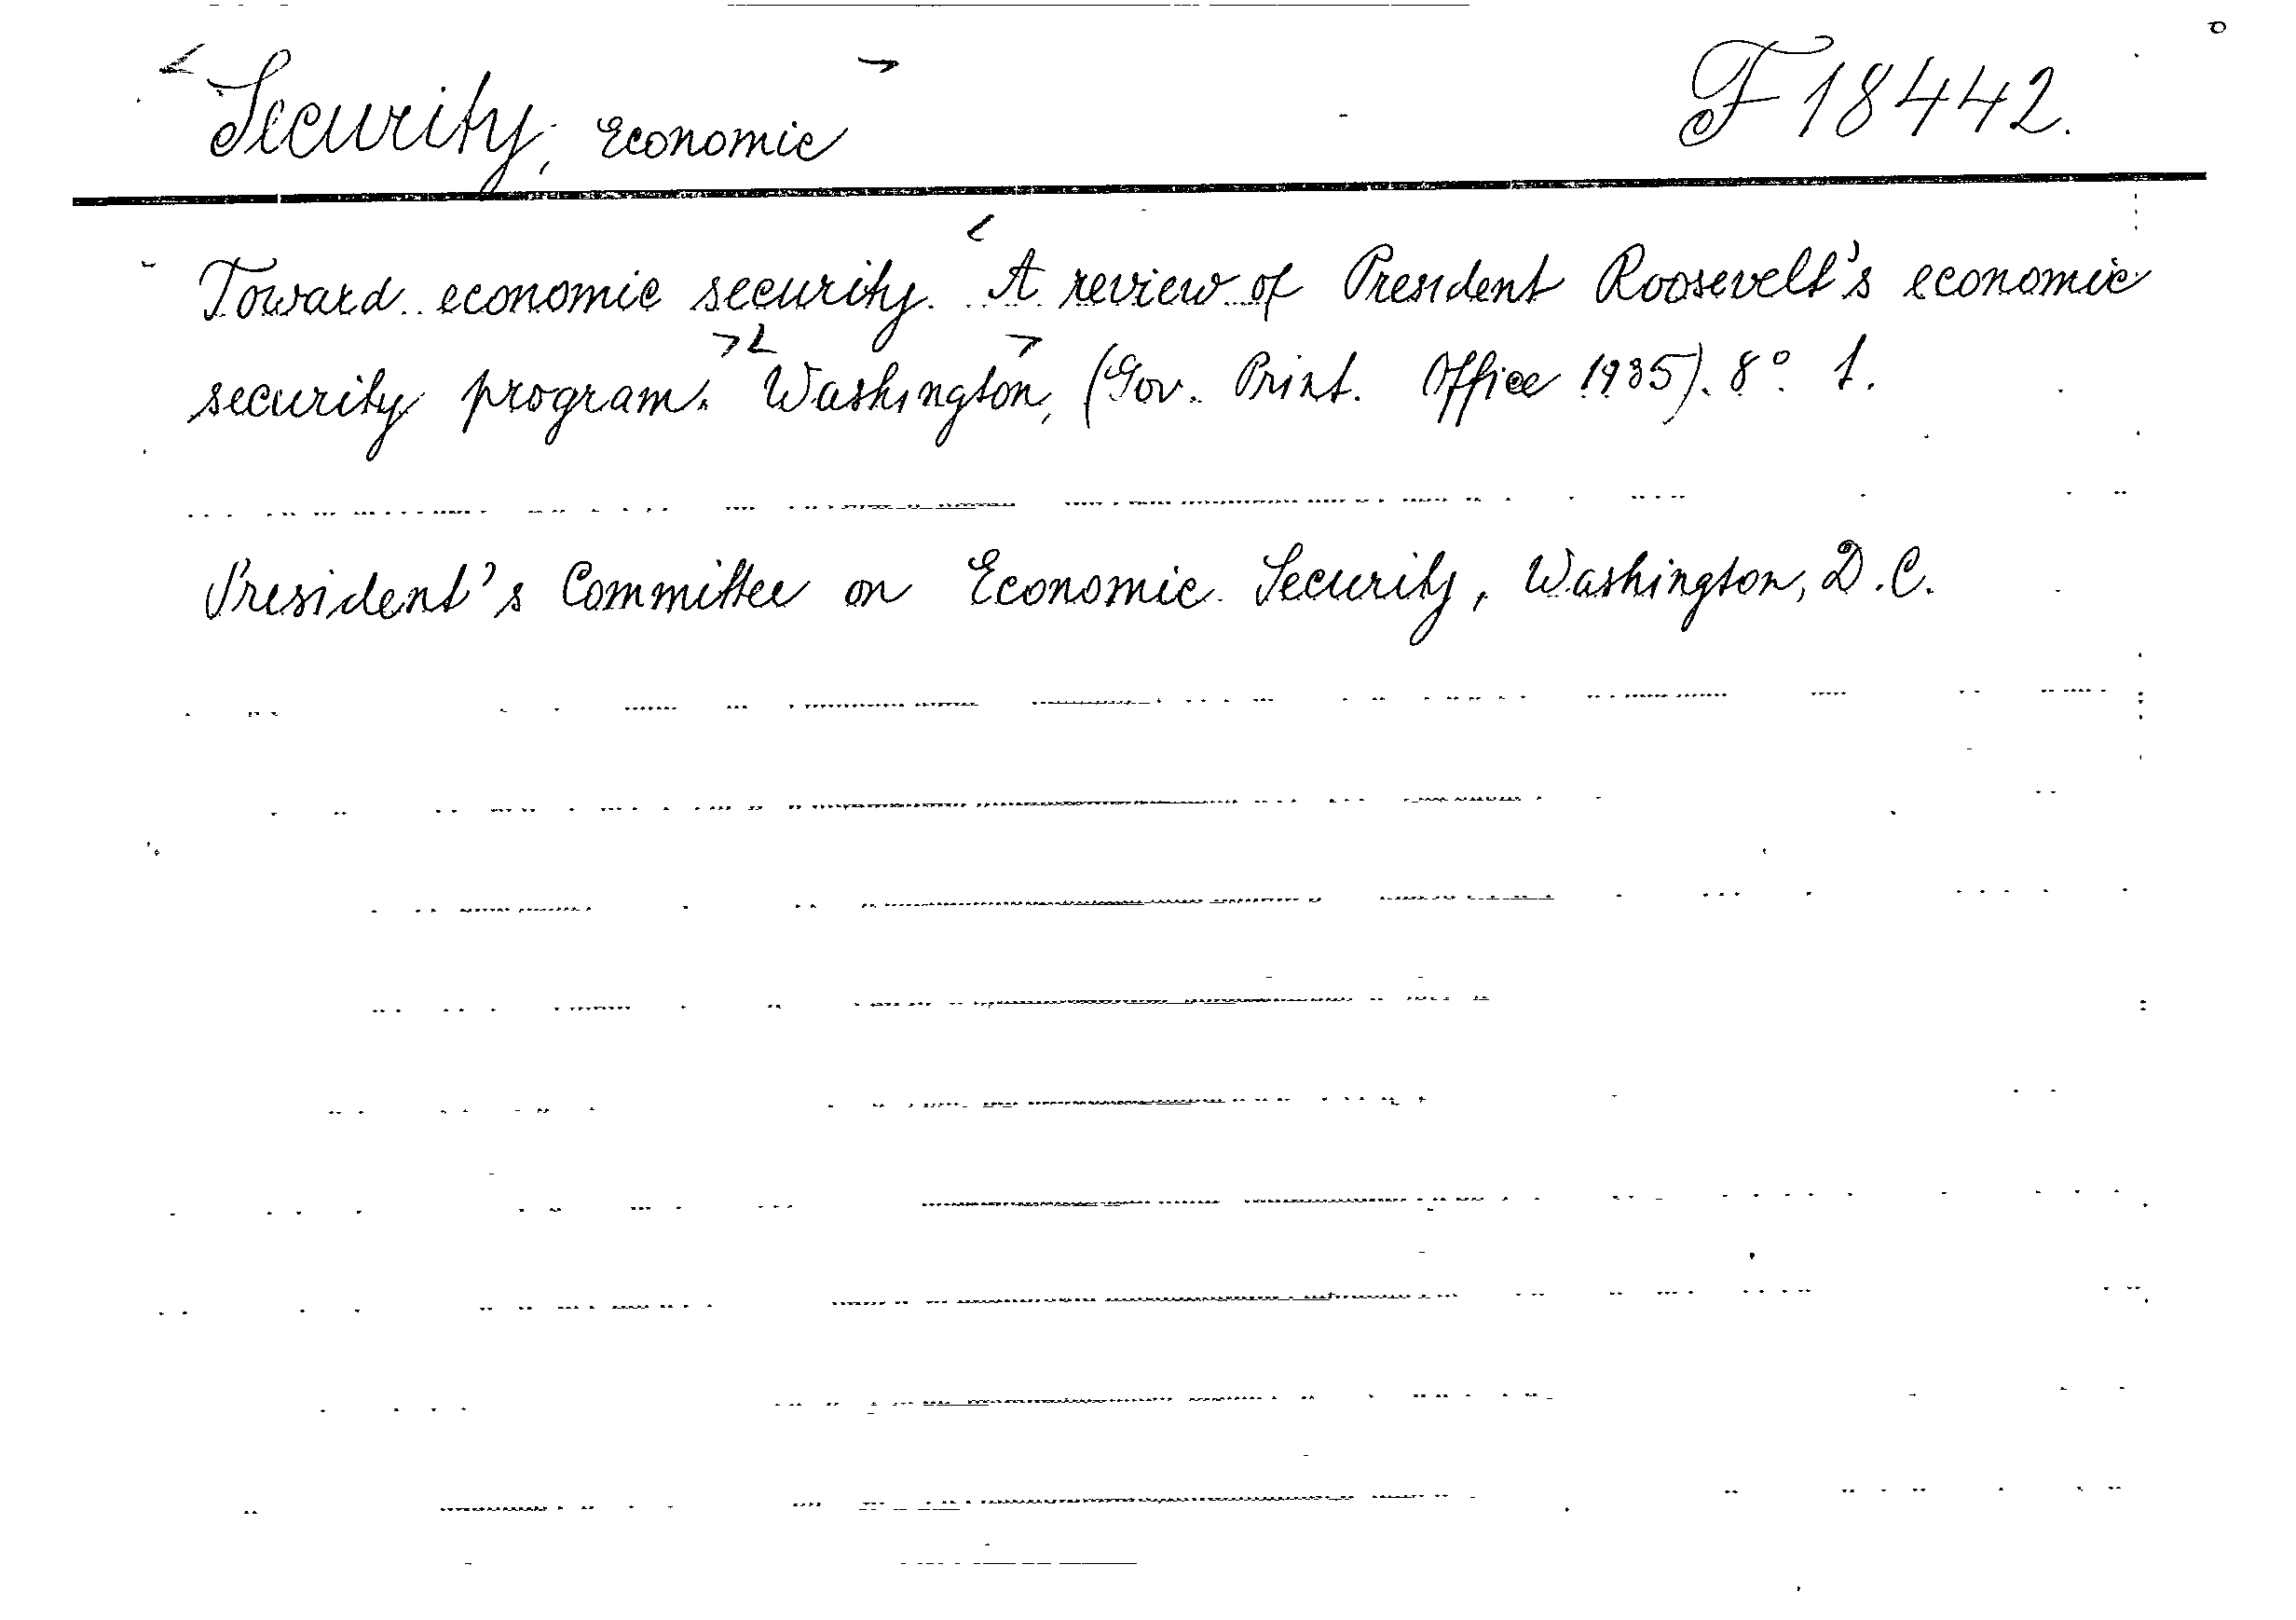 Security, Economic F 18442.
Toward economic security. A review of President Roosevelt's economic
security program. Washington, (Gov. Print. Office 1935). 8°. 1.
President's Committee on Economic Security, Washington, D.C.